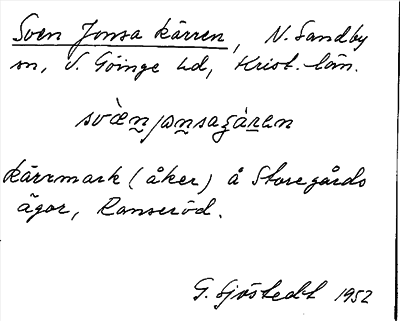 Sven Jonsa kärren, N. Sandby
sn, V. Göinge hd, Krist. län.
kärrmark (åker) å Storegårds
ägor, Ranseröd.
G. Sjöstedt 1952